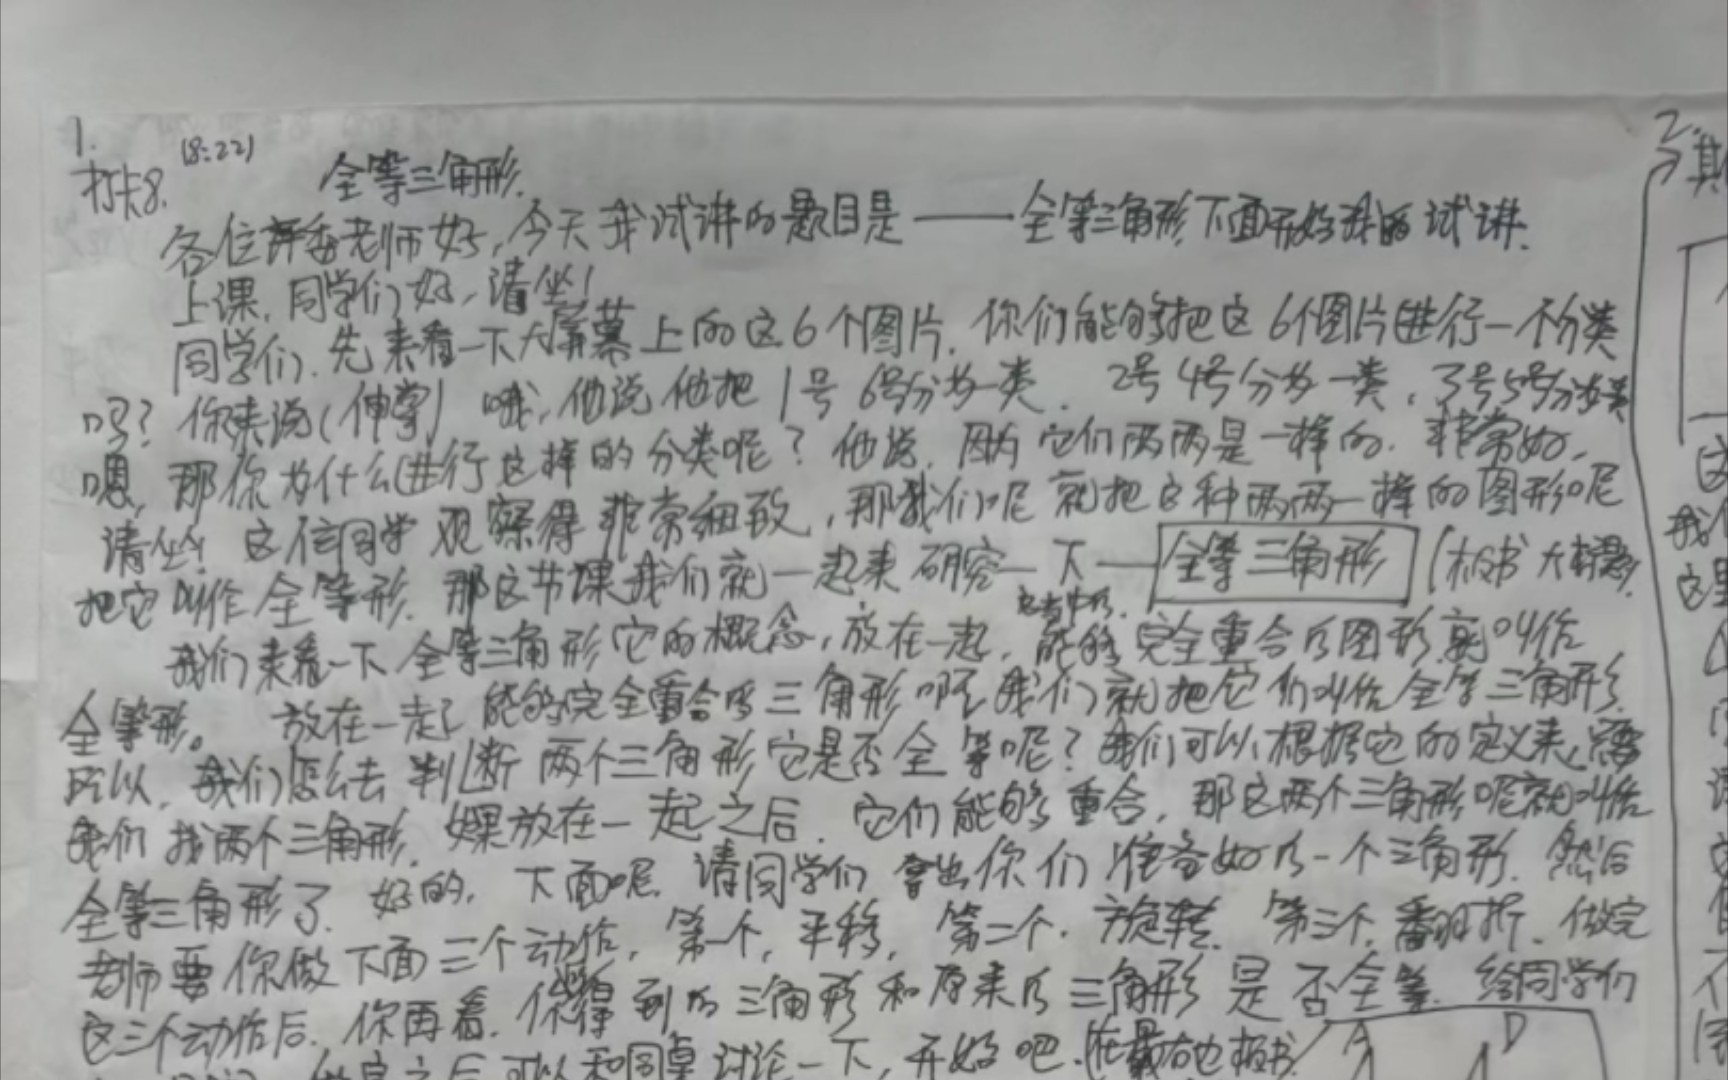 1.
打卡8. (8:22) 全等三角形.
各位评委老师好,今天我试讲的题目是——全等三角形 下面开始我的试讲.
上课,同学们好,请坐!
同学们.先来看一下大屏幕上的这6个图片.你们能够把这6个图片进行一个分类
吗?你来说(伸掌) 哦,他说他把1号6号分为一类.2号4号分为一类,3号5号分为一类
嗯,那你为什么进行这样的分类呢?他说.因为它们两两是一样的.非常好.
请坐!这位同学观察得非常细致,那我们呢就把这种两两一样的图形呢
把它叫作全等形.那这节课我们就一起来研究一下——全等三角形(板书大标题)
我们来看一下全等三角形它的概念,放在一起,能够完全重合的图形就叫作
全等形。放在一起能够完全重合的三角形呢我们就把它们叫作全等三角形.
所以,我们怎么去判断两个三角形它是否全等呢?我们可以根据它的定义来,需要
我们找两个三角形.如果放在一起之后.它们能够重合,那这两个三角形呢就叫作
全等三角形了.好的,下面呢.请同学们拿出你们准备好的一个三角形.然后
老师要你做下面三个动作,第一个,平移,第二个.旋转.第三个.翻折.做完
这三个动作后.你再看.你得到的三角形和原来的三角形是否全等.给同学们
做完之后可以和同桌讨论一下,开始吧.(在最右边板书
A D
2.